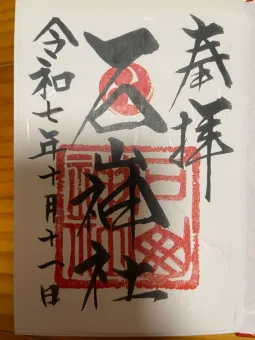 奉拝
石神社
令和七年十月十一日